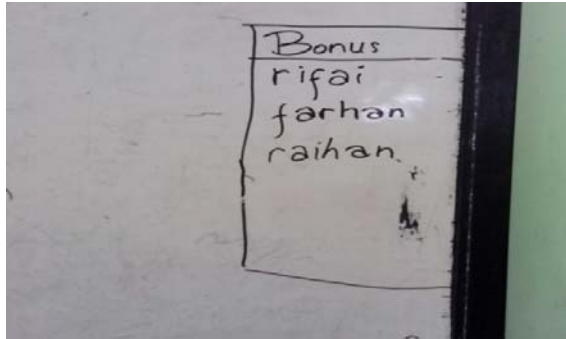 Bonus
rifai
farhan
raihan.